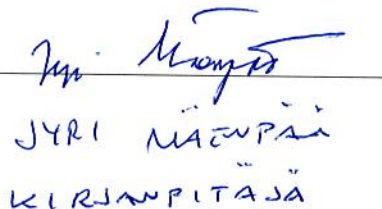 Jyri Mäenpää
JYRI MÄENPÄÄ
KIRJANPITÄJÄ